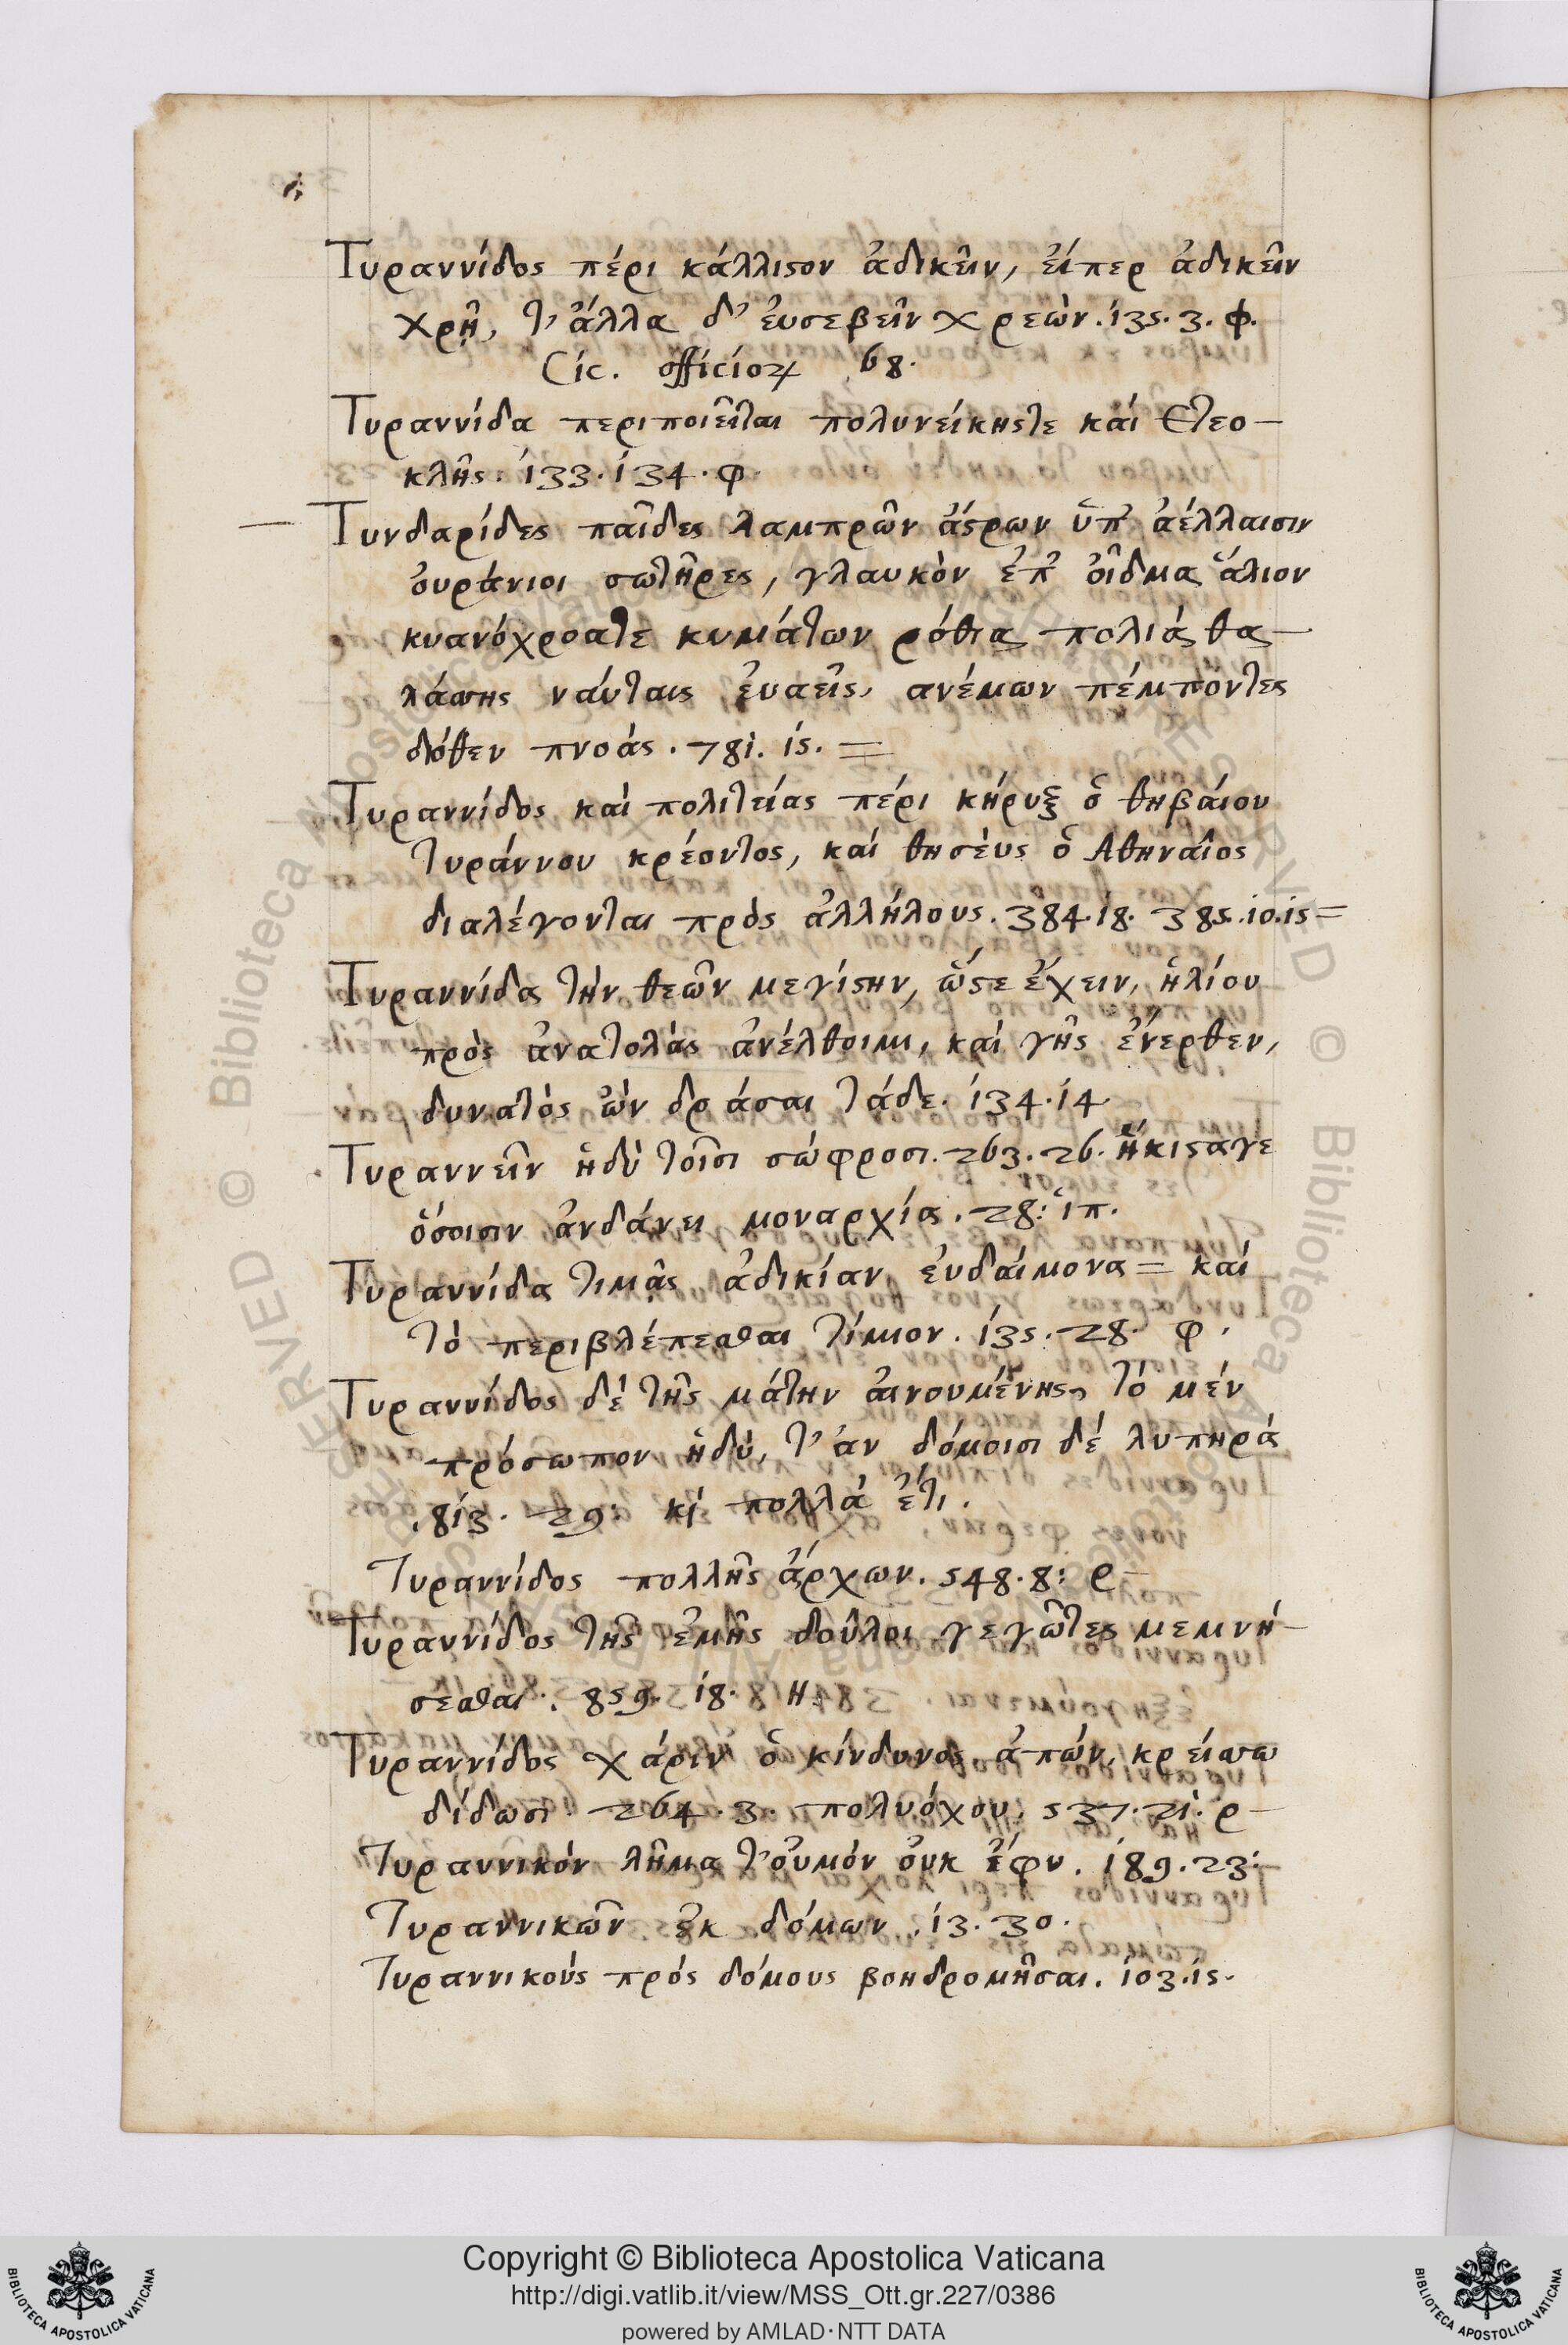 Τυραννίδος πέρι κάλλιστον ἀδικεῖν, εἴπερ ἀδικεῖν
χρῆ, τ' ἄλλα δ' ἐυσεβεῖν χρεὼν. 135. 3. φ.
Cic. officioꝝ 68.
Τυραννίδα περιποιεῖται πολυνείκηστε καί Ετεο-
κλῆς. 133. 134. φ.
Τυνδαρίδες παῖδες λαμπρῶν ἄστρων ὑπ' ἀέλλαισιν
ὀυράνιοι σωτῆρες, γλαυκὸν ἐπ' οἶδμα ἅλιον
κυανόχροατε κυμάτων ρόθια πολιά θα-
λάσσης νάυταις ἐυαεῖς, ανέμων πέμποντες
διόθεν πνοάς. 781. 15. =
Τυραννίδος καί πολιτείας πέρι κήρυξ ὁ θηβάιου
τυράννου κρέοντος, καί θησεὺς ὁ Αθηναῖος
διαλέγονται πρὸς ἀλλήλους. 384. 18. 385. 10. 15 =
Τυραννίδα τὴν θεῶν μεγίστην, ὥστε ἔχειν, ἡλίου
πρὸς ἀνατολὰς ἀνέλθοιμι, καί γῆς ἔνερθεν,
δυνατὸς ὢν δράσαι τάδε. 134. 14
Τυραννεῖν ἡδὺ τοῖσι σώφροσι. 263. 26. ἥκισταγε
ὅσοισιν ἁνδάνει μοναρχία. 28: ἱπ.
Τυραννίδα τιμᾷς ἀδικίαν, ἐυδάιμονα = καί
τὸ περιβλέπεσθαι τίμιον. 135. 28. φ.
Τυραννίδος δέ τῆς μάτην ἀινουμένης, τὸ μέν
πρόσωπον ἡδὺ, τ' ἀν δόμοισι δέ λυπηρά
. 813. 29: κὶ πολλά ἔτι.
Τυραννίδος πολλῆς ἄρχων. 548. 8: ρ-
Τυραννίδος τῆς ἐμῆς δοῦλοι γεγῶτες μεμνή-
σεσθαι. 859. 18. Η.
Τυραννίδος χάριν ὁ κίνδυνος ἀπών, κρείσσω
δίδωσι. 264. 3. πολυόχου. 537. 21. ρ-
Τυραννικόν λῆμα τ' οὐμόν ὀυκ ἔφυ. 189. 23:
Τυραννικῶν ἐκ δόμων. 13. 30.
Τυραννικούς πρός δόμους βοηδρομῆσαι. 103. 15.
Copyright © Biblioteca Apostolica Vaticana
http://digi.vatlib.it/view/MSS_Ott.gr.227/0386
powered by AMLAD·NTT DATA
BIBLIOTECA APOSTOLICA VATICANA
BIBLIOTECA APOSTOLICA VATICANA